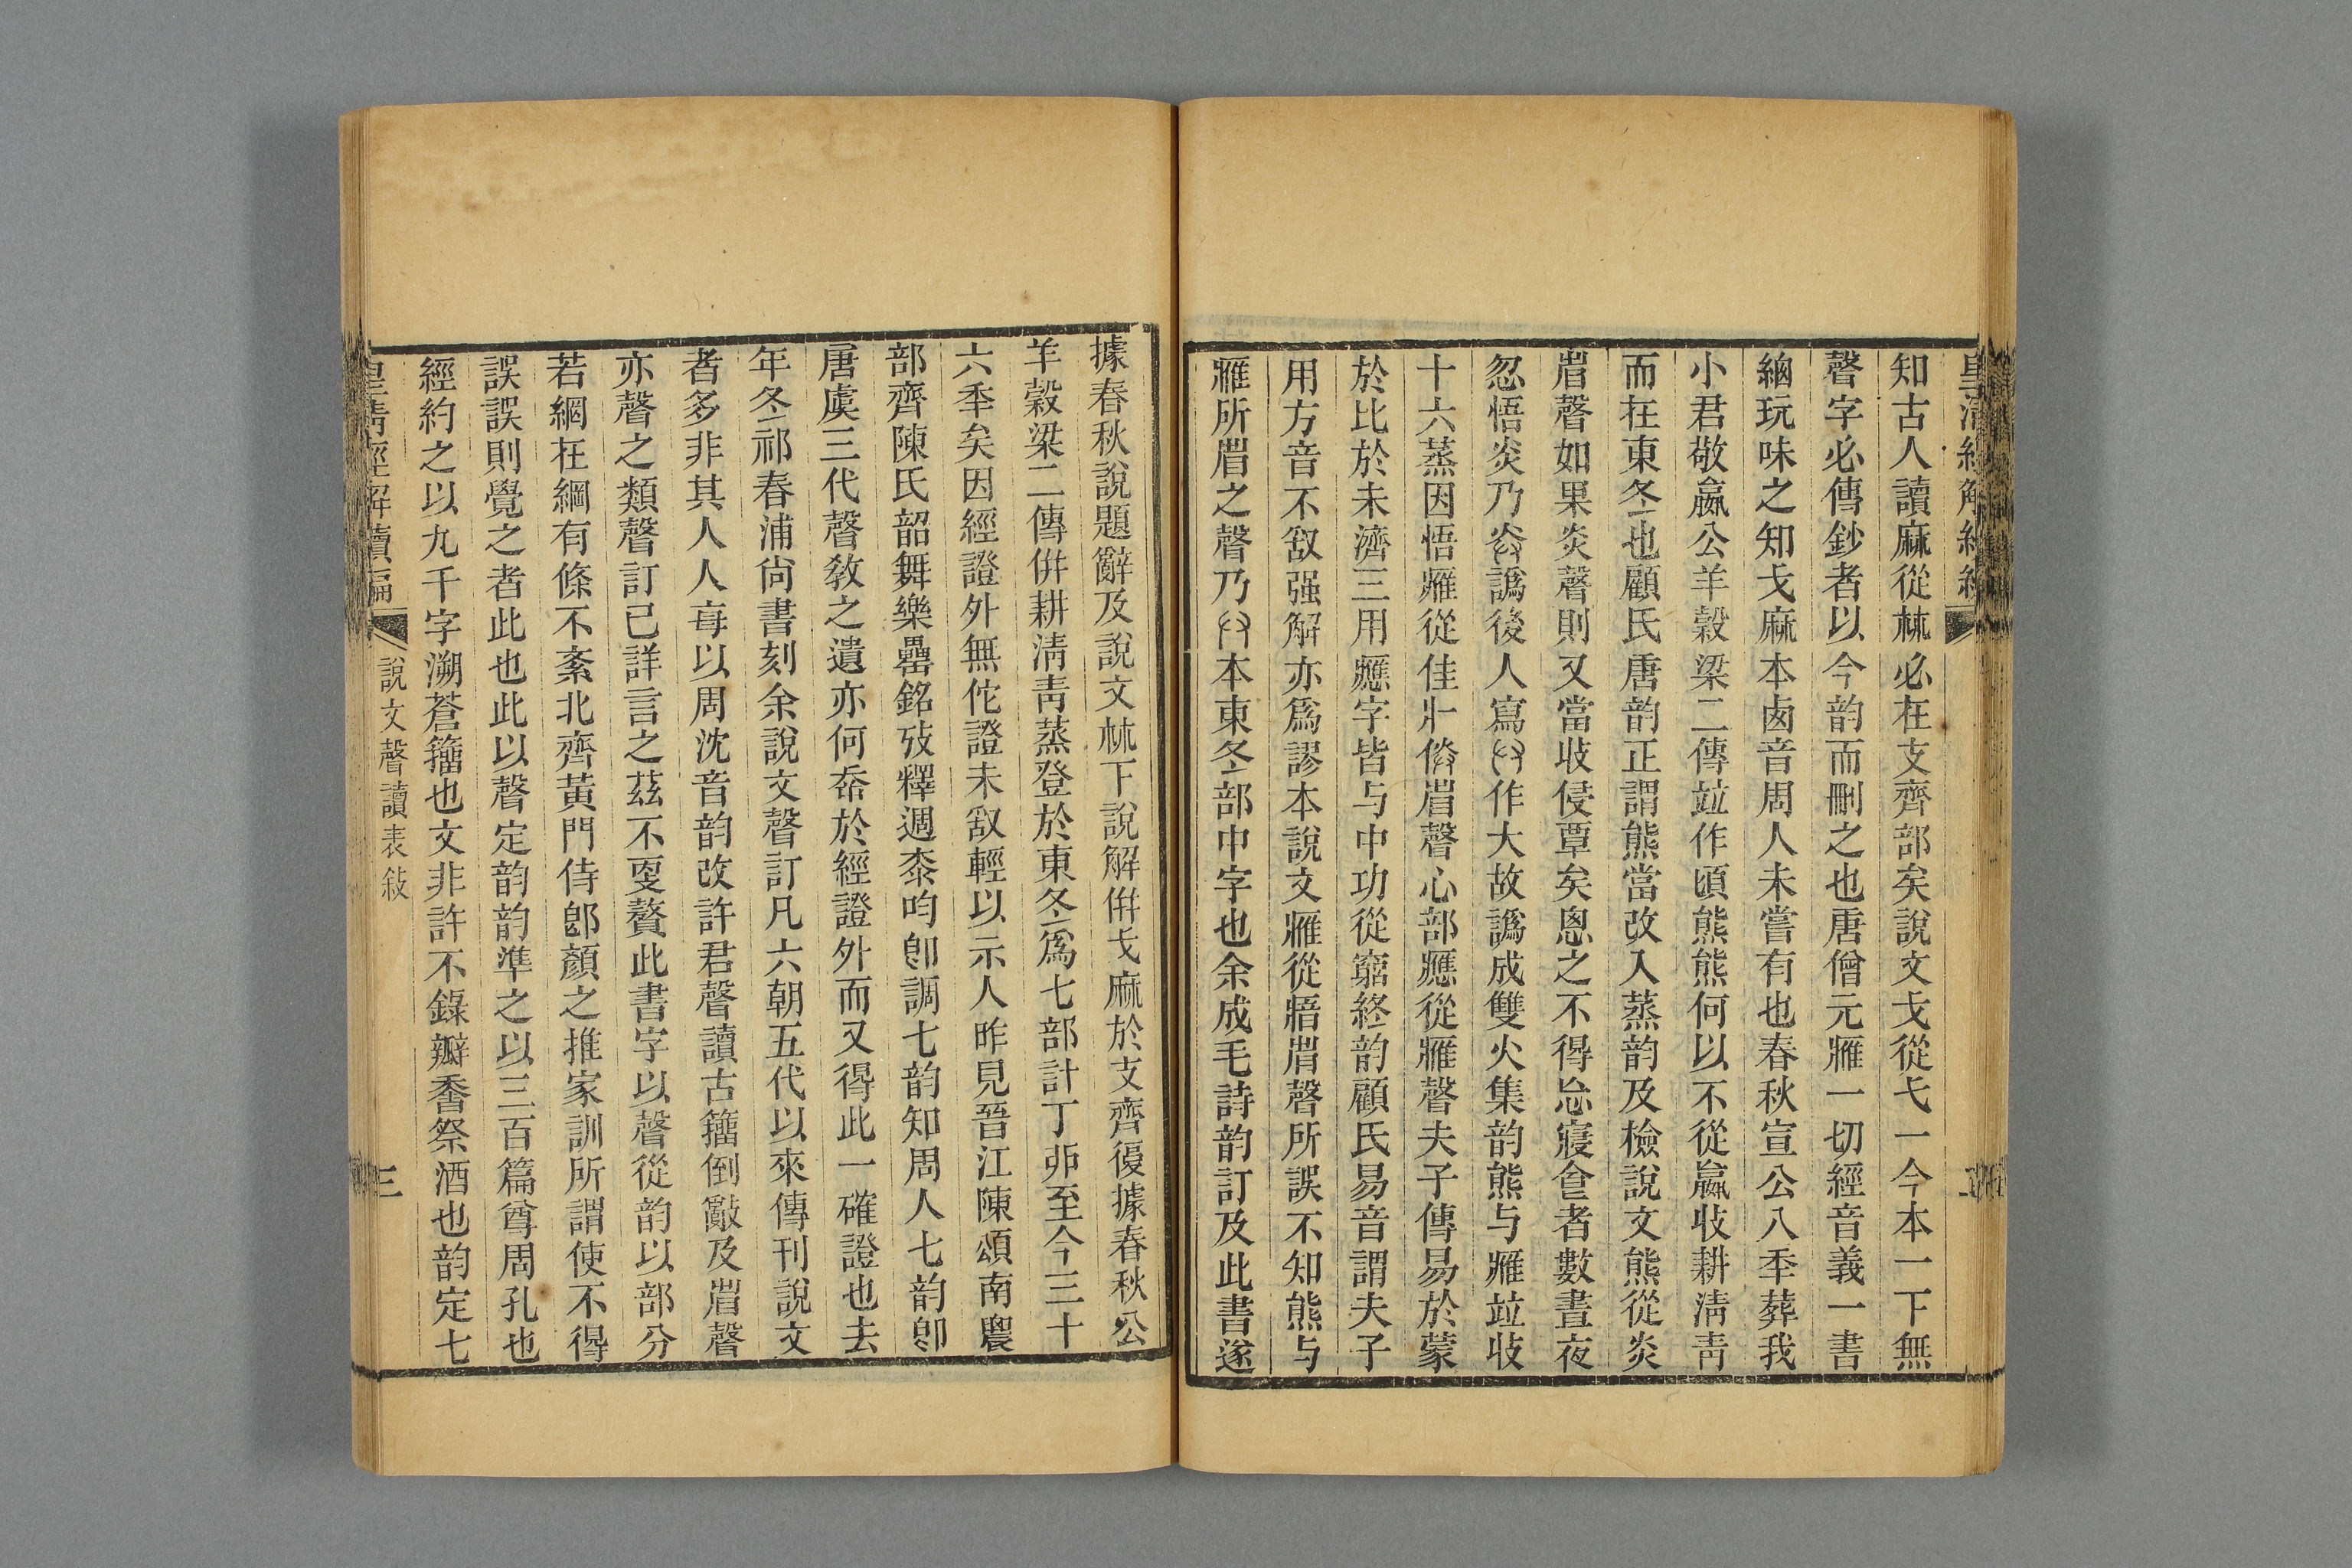 知古人讀麻從𣏟必在支齊部矣說文戈從弋一今本一下無
聲字必傳鈔者以今韵而刪之也唐僧元雁一切經音義一書
紬玩味之知戈麻本卤音周人未嘗有也春秋宣公八秊葬我
小君敬嬴公羊穀梁二傳竝作頃熊熊何以不從嬴收耕淸靑
而在東冬也顧氏唐韵正謂熊當改入蒸韵及檢說文熊從炎
㾕聲如果炎聲則又當收侵覃矣恖之不得忘寢食者數晝夜
忽悟炎乃譌後人寫作大故譌成雙火集韵熊与雁竝收
十六蒸因悟雁從隹疒㾕聲心部應從雁聲夫子傳易於蒙
於比於未濟三用應字皆与中功從窮終韵顧氏易音謂夫子
用方音不敢强解亦爲謬本說文雁從㾕聲所誤不知熊与
雁所㾕之聲乃本東冬部中字也余成毛詩韵訂及此書遂
據春秋說題辭及說文𣏟下說解倂戈麻於支齊復據春秋公
羊穀梁二傳倂耕淸靑蒸登於東冬爲七部計丁丣至今三十
六秊矣因經證外無佗證未敢輕以示人昨見晉江陳頌南農
部齊陳氏韶舞樂罍銘攷釋週桼呁卽調七韵知周人七韵卽
唐虞三代聲敎之遺亦何㤅於經證外而又得此一確證也去
年冬祁春浦尙書刻余說文聲訂凡六朝五代以來傳刊說文
者多非其人人每以周沈音韵改許君聲讀古籒倒敚及㾕聲
亦聲之類聲訂已詳言之茲不㪅贅此書字以聲從韵以部分
若網在綱有條不紊北齊黃門侍郎顏之推家訓所謂使不得
誤誤則覺之者此也此以聲定韵韵準之以三百篇尊周孔也
經約之以九千字溯蒼籒也文非許不錄瓣香祭酒也韵定七
皇淸經解續編
說文聲讀表敍
三